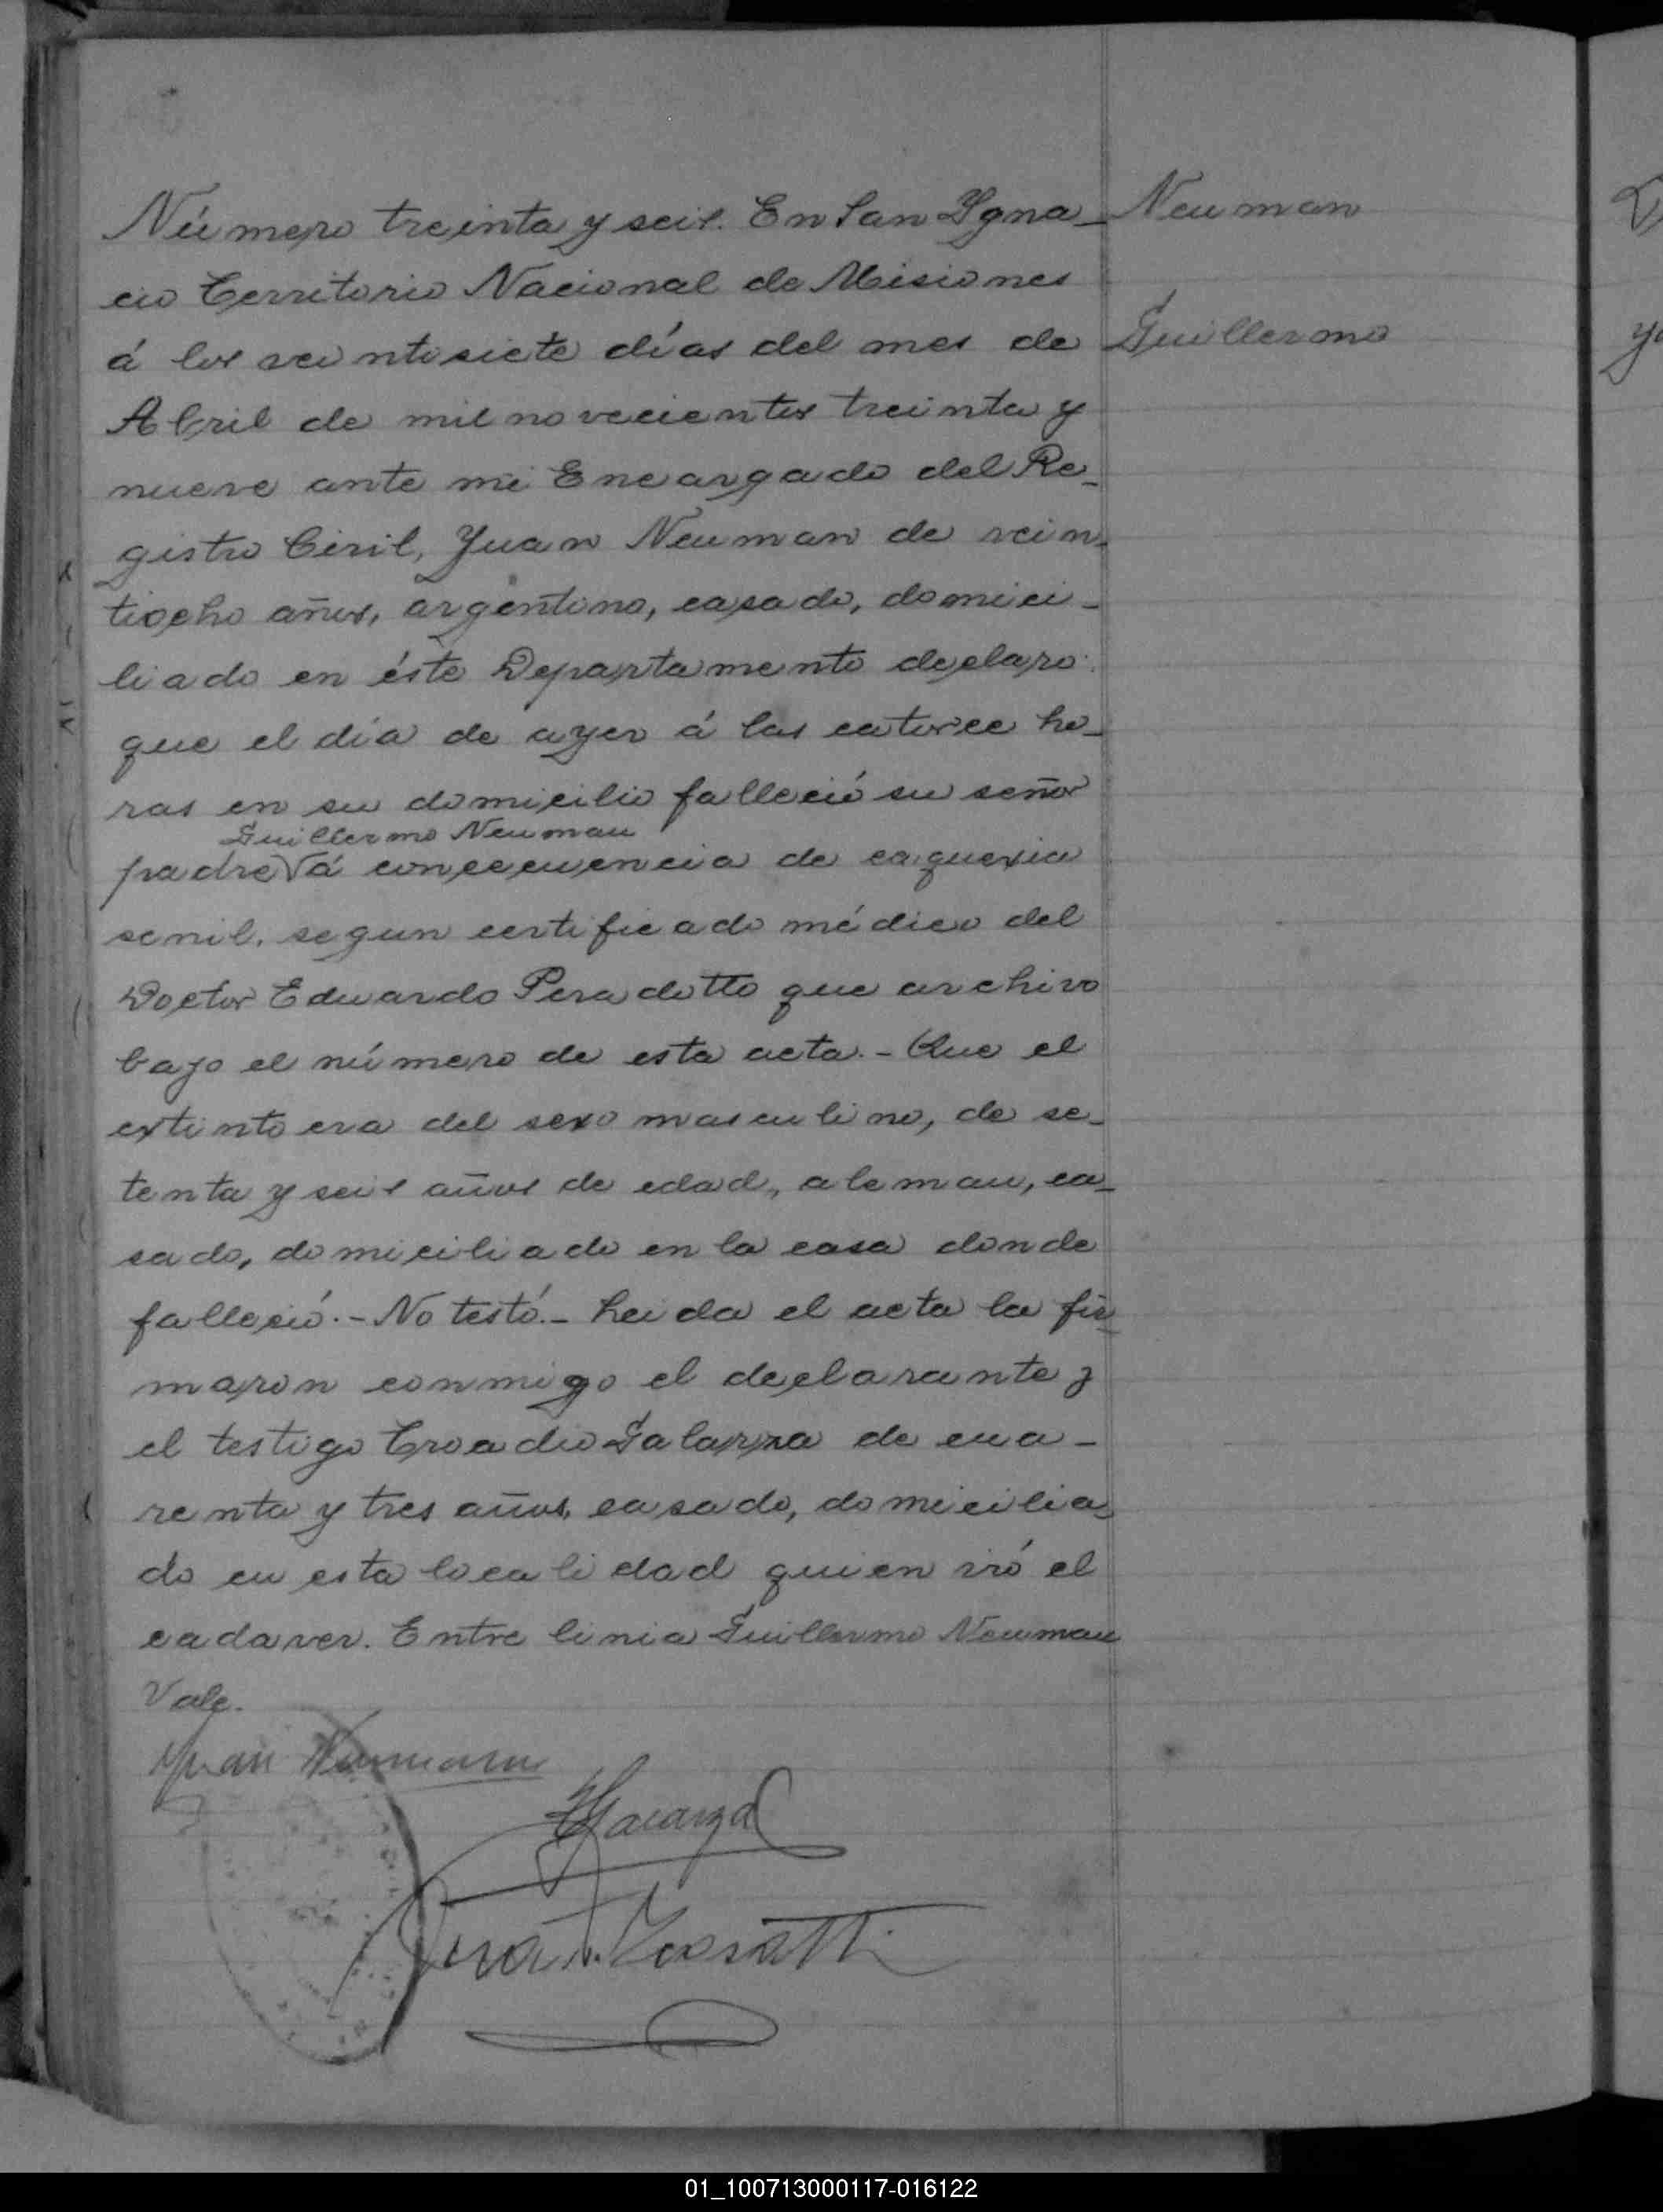 Número treinta y seis. En San Ygna-
cio Territorio Nacional de Misiones
á los veintisiete días del mes de
Abril de mil novecientos treinta y
nueve ante mi Encargado del Re-
gistro Civil, Juan Neuman de vein-
tiocho años, argentino, casado, domici-
liado en éste Departamento declaro:
que el día de ayer á las catorce ho-
ras en su domicilio falleció su señor
Guillermo Neuman
padre V á concecuencia de caquexia
senil, segun certificado médico del
Doctor Eduardo Peradotto que archivo
bajo el número de esta acta.- Que el
extinto era del sexo masculino, de se-
tenta y seis años de edad, aleman, ca-
sado, domiciliado en la casa donde
falleció.- No testó.- Leida el acta la fir-
maron conmigo el declarante y
el testigo Troadio Galarza de cua-
renta y tres años, casado, domicilia-
do en esta localidad quien vió el
cadaver. Entre linia Guillermo Neuman
Vale.
Juan Neumann
Galarza
Neuman
Guillermo
01_100713000117-016122